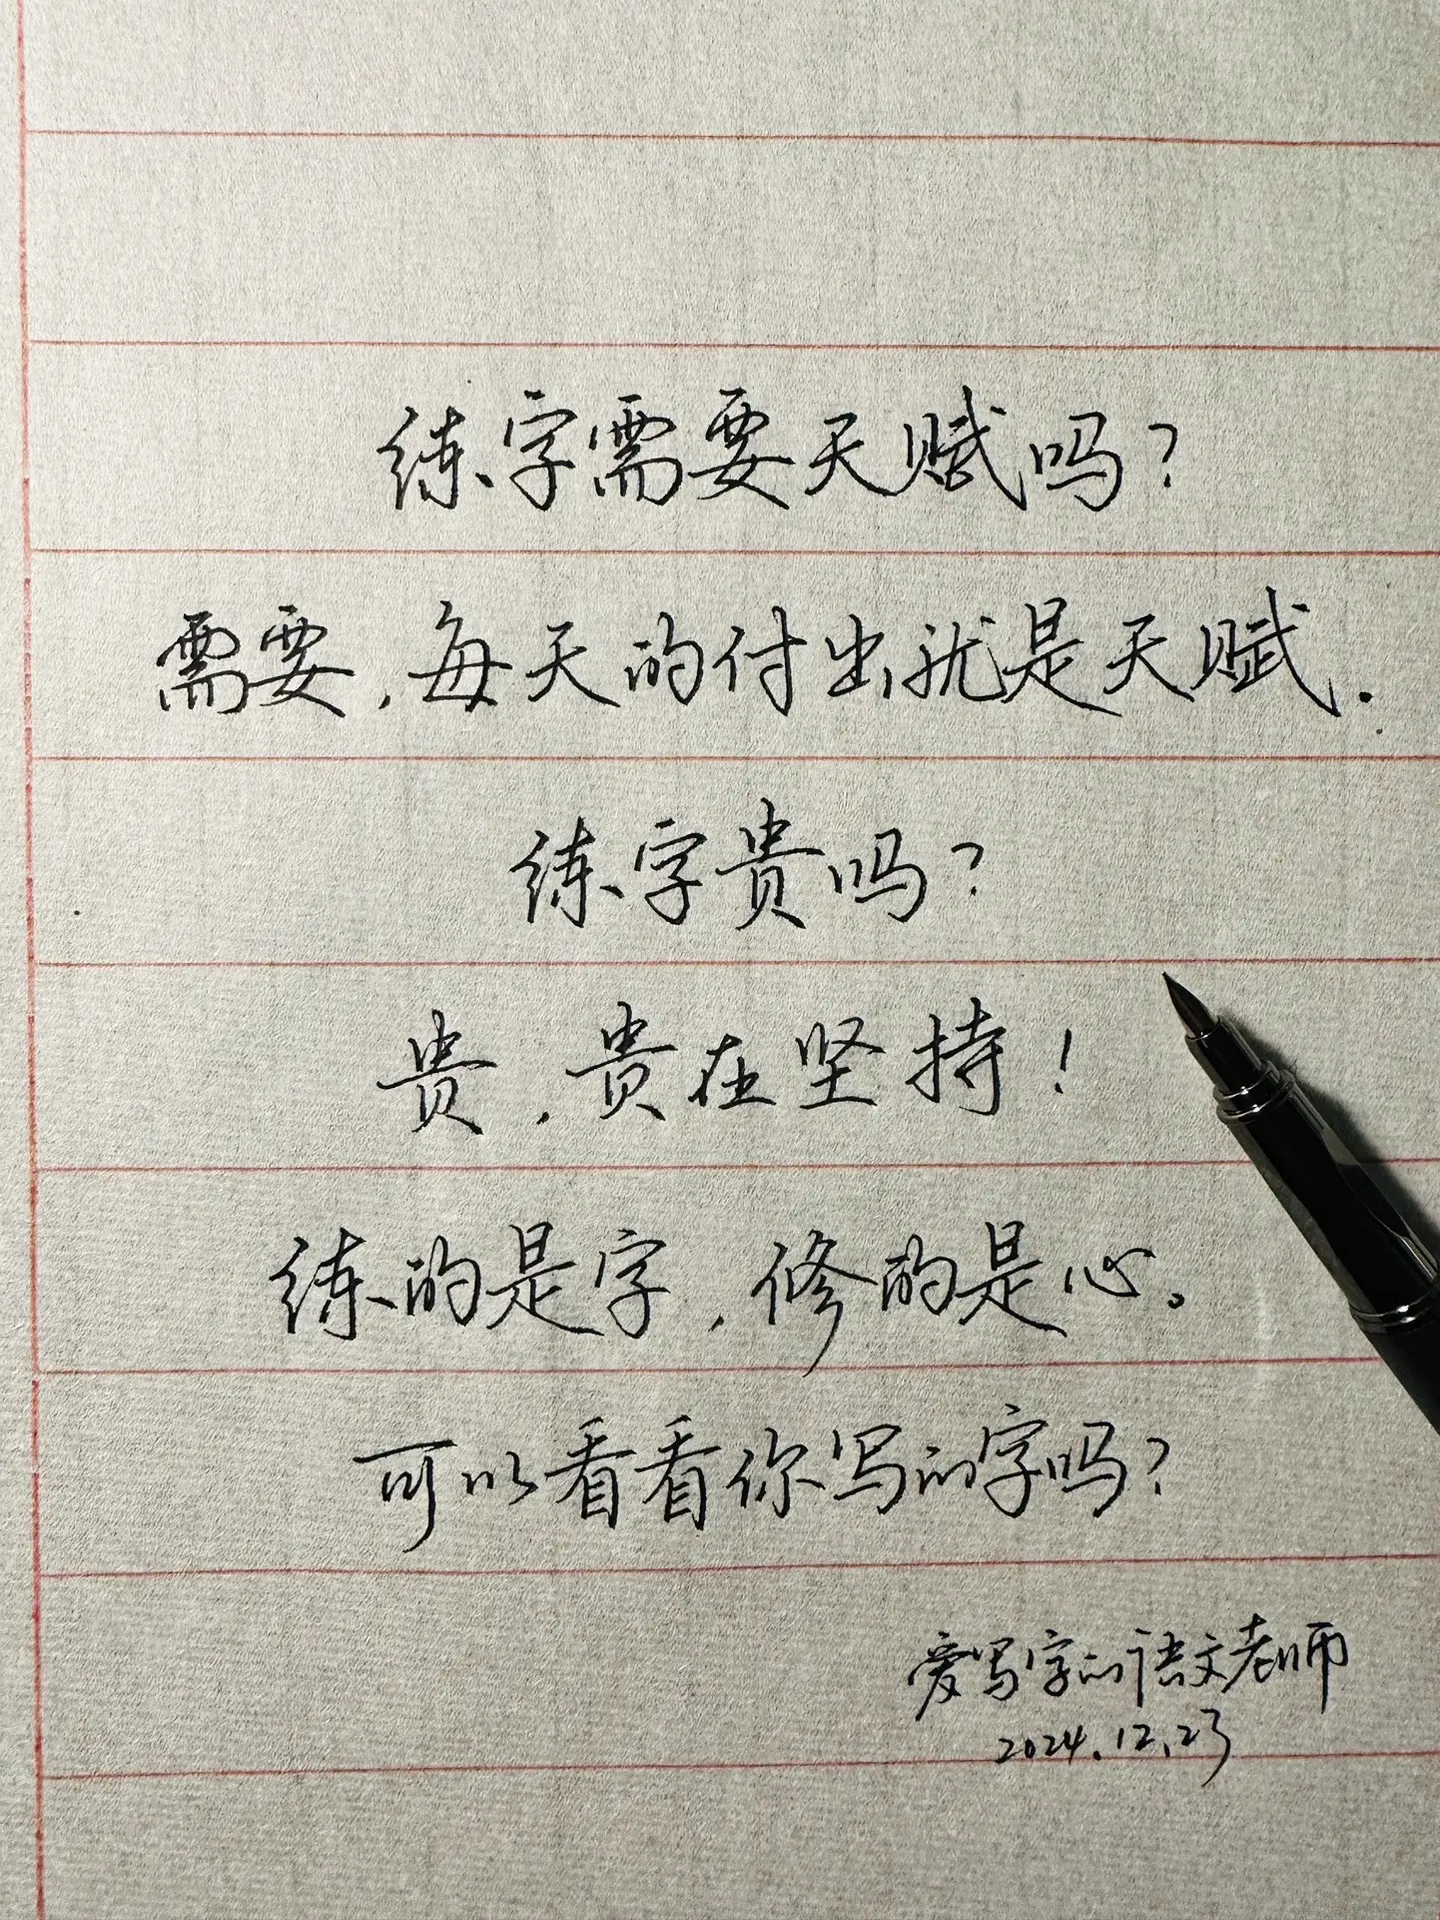 练字需要天赋吗?
需要,每天的付出就是天赋.
练字贵吗?
贵,贵在坚持!
练的是字,修的是心。
可以看看你写的字吗?
爱写字的语文老师
2024.12.23